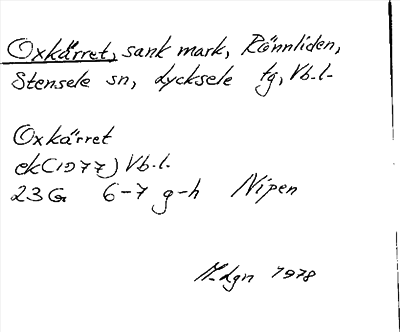 Oxkärret, sank mark, Rönnliden,
Stensele sn, Lycksele tg, Vb.l.
Oxkärret
ek(1977) Vb.l.
23G 6-7 g-h Nipen
1978